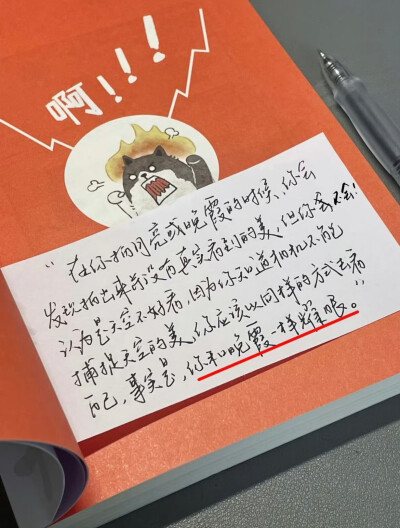 啊!!!
“在你拍月亮或晚霞的时候，你会
发现拍出来并没有真实看到的美，但你不会!
认为是天空不好看，因为你知道相机不能
捕捉天空的美，你应该以同样的方式去看
自己，事实是，你和晚霞一样耀眼。”